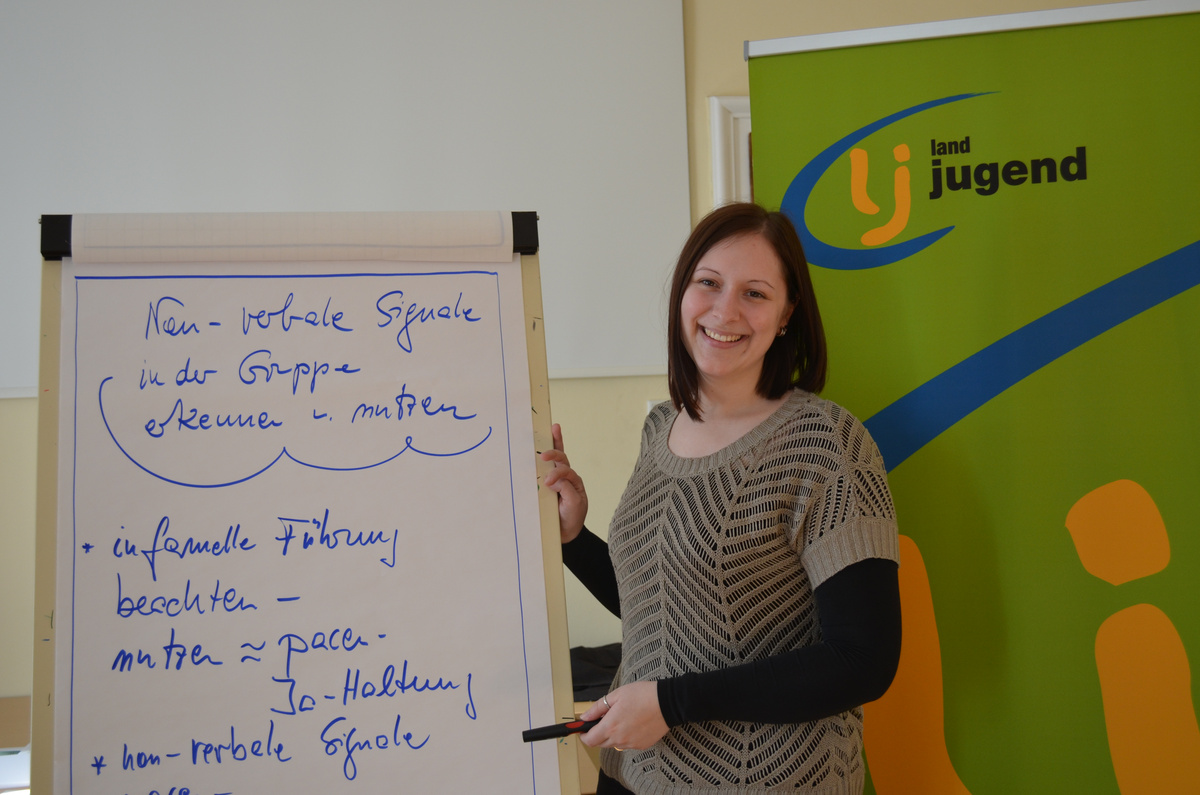 Non-verbale Signale
in der Gruppe
erkennen u. nutzen
* informelle Führung
beachten -
nutzen ≈ pacen -
Ja-Haltung
* non-verbale Signale
land
jugend
lj